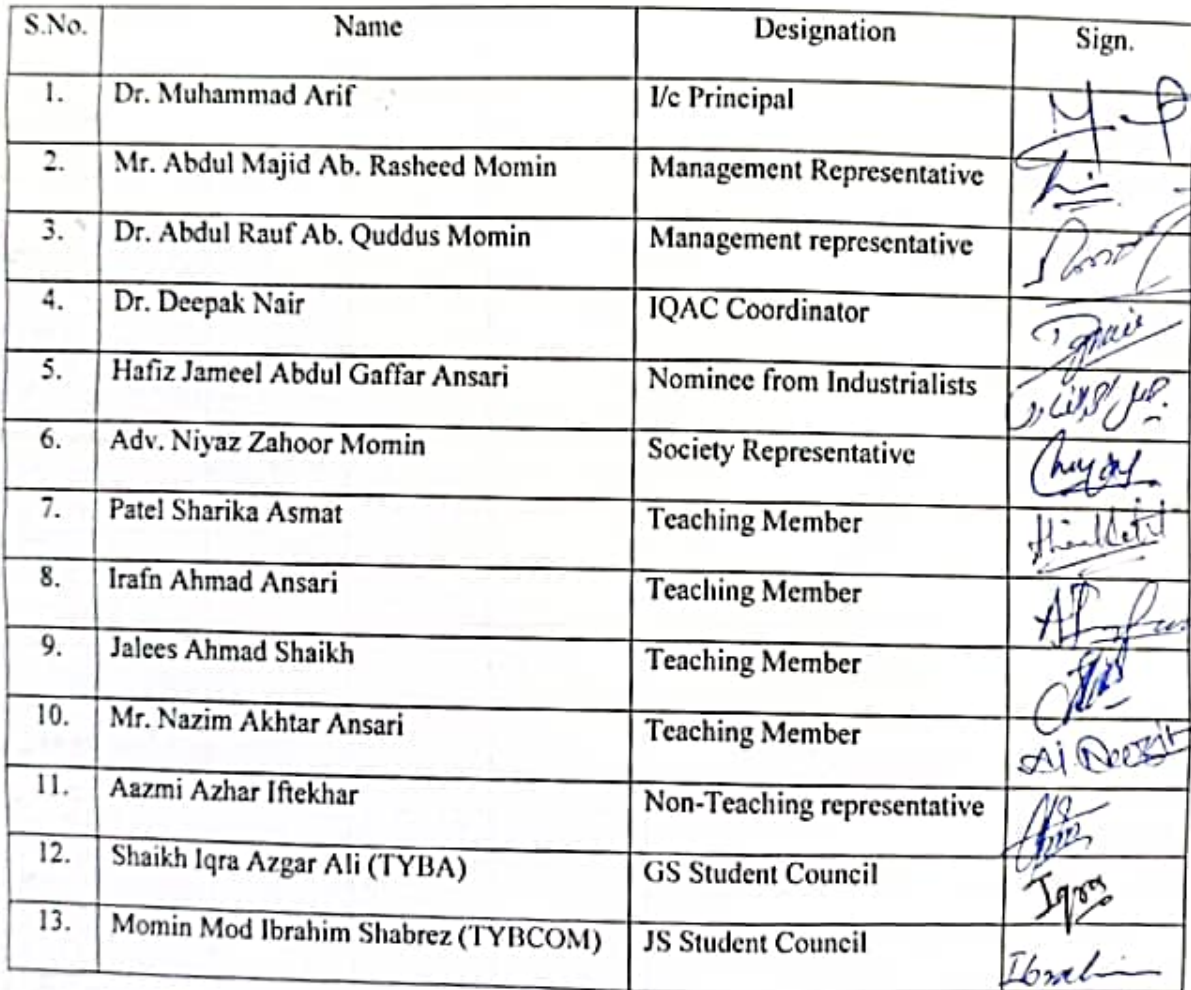 S.No. Name Designation Sign.
1. Dr. Muhammad Arif I/c Principal
2. Mr. Abdul Majid Ab. Rasheed Momin Management Representative
3. Dr. Abdul Rauf Ab. Quddus Momin Management representative
4. Dr. Deepak Nair IQAC Coordinator
5. Hafiz Jameel Abdul Gaffar Ansari Nominee from Industrialists
6. Adv. Niyaz Zahoor Momin Society Representative
7. Patel Sharika Asmat Teaching Member
8. Irafn Ahmad Ansari Teaching Member
9. Jalees Ahmad Shaikh Teaching Member
10. Mr. Nazim Akhtar Ansari Teaching Member
11. Aazmi Azhar Iftekhar Non-Teaching representative
12. Shaikh Iqra Azgar Ali (TYBA) GS Student Council Iqra
13. Momin Mod Ibrahim Shabrez (TYBCOM) JS Student Council Ibrahim